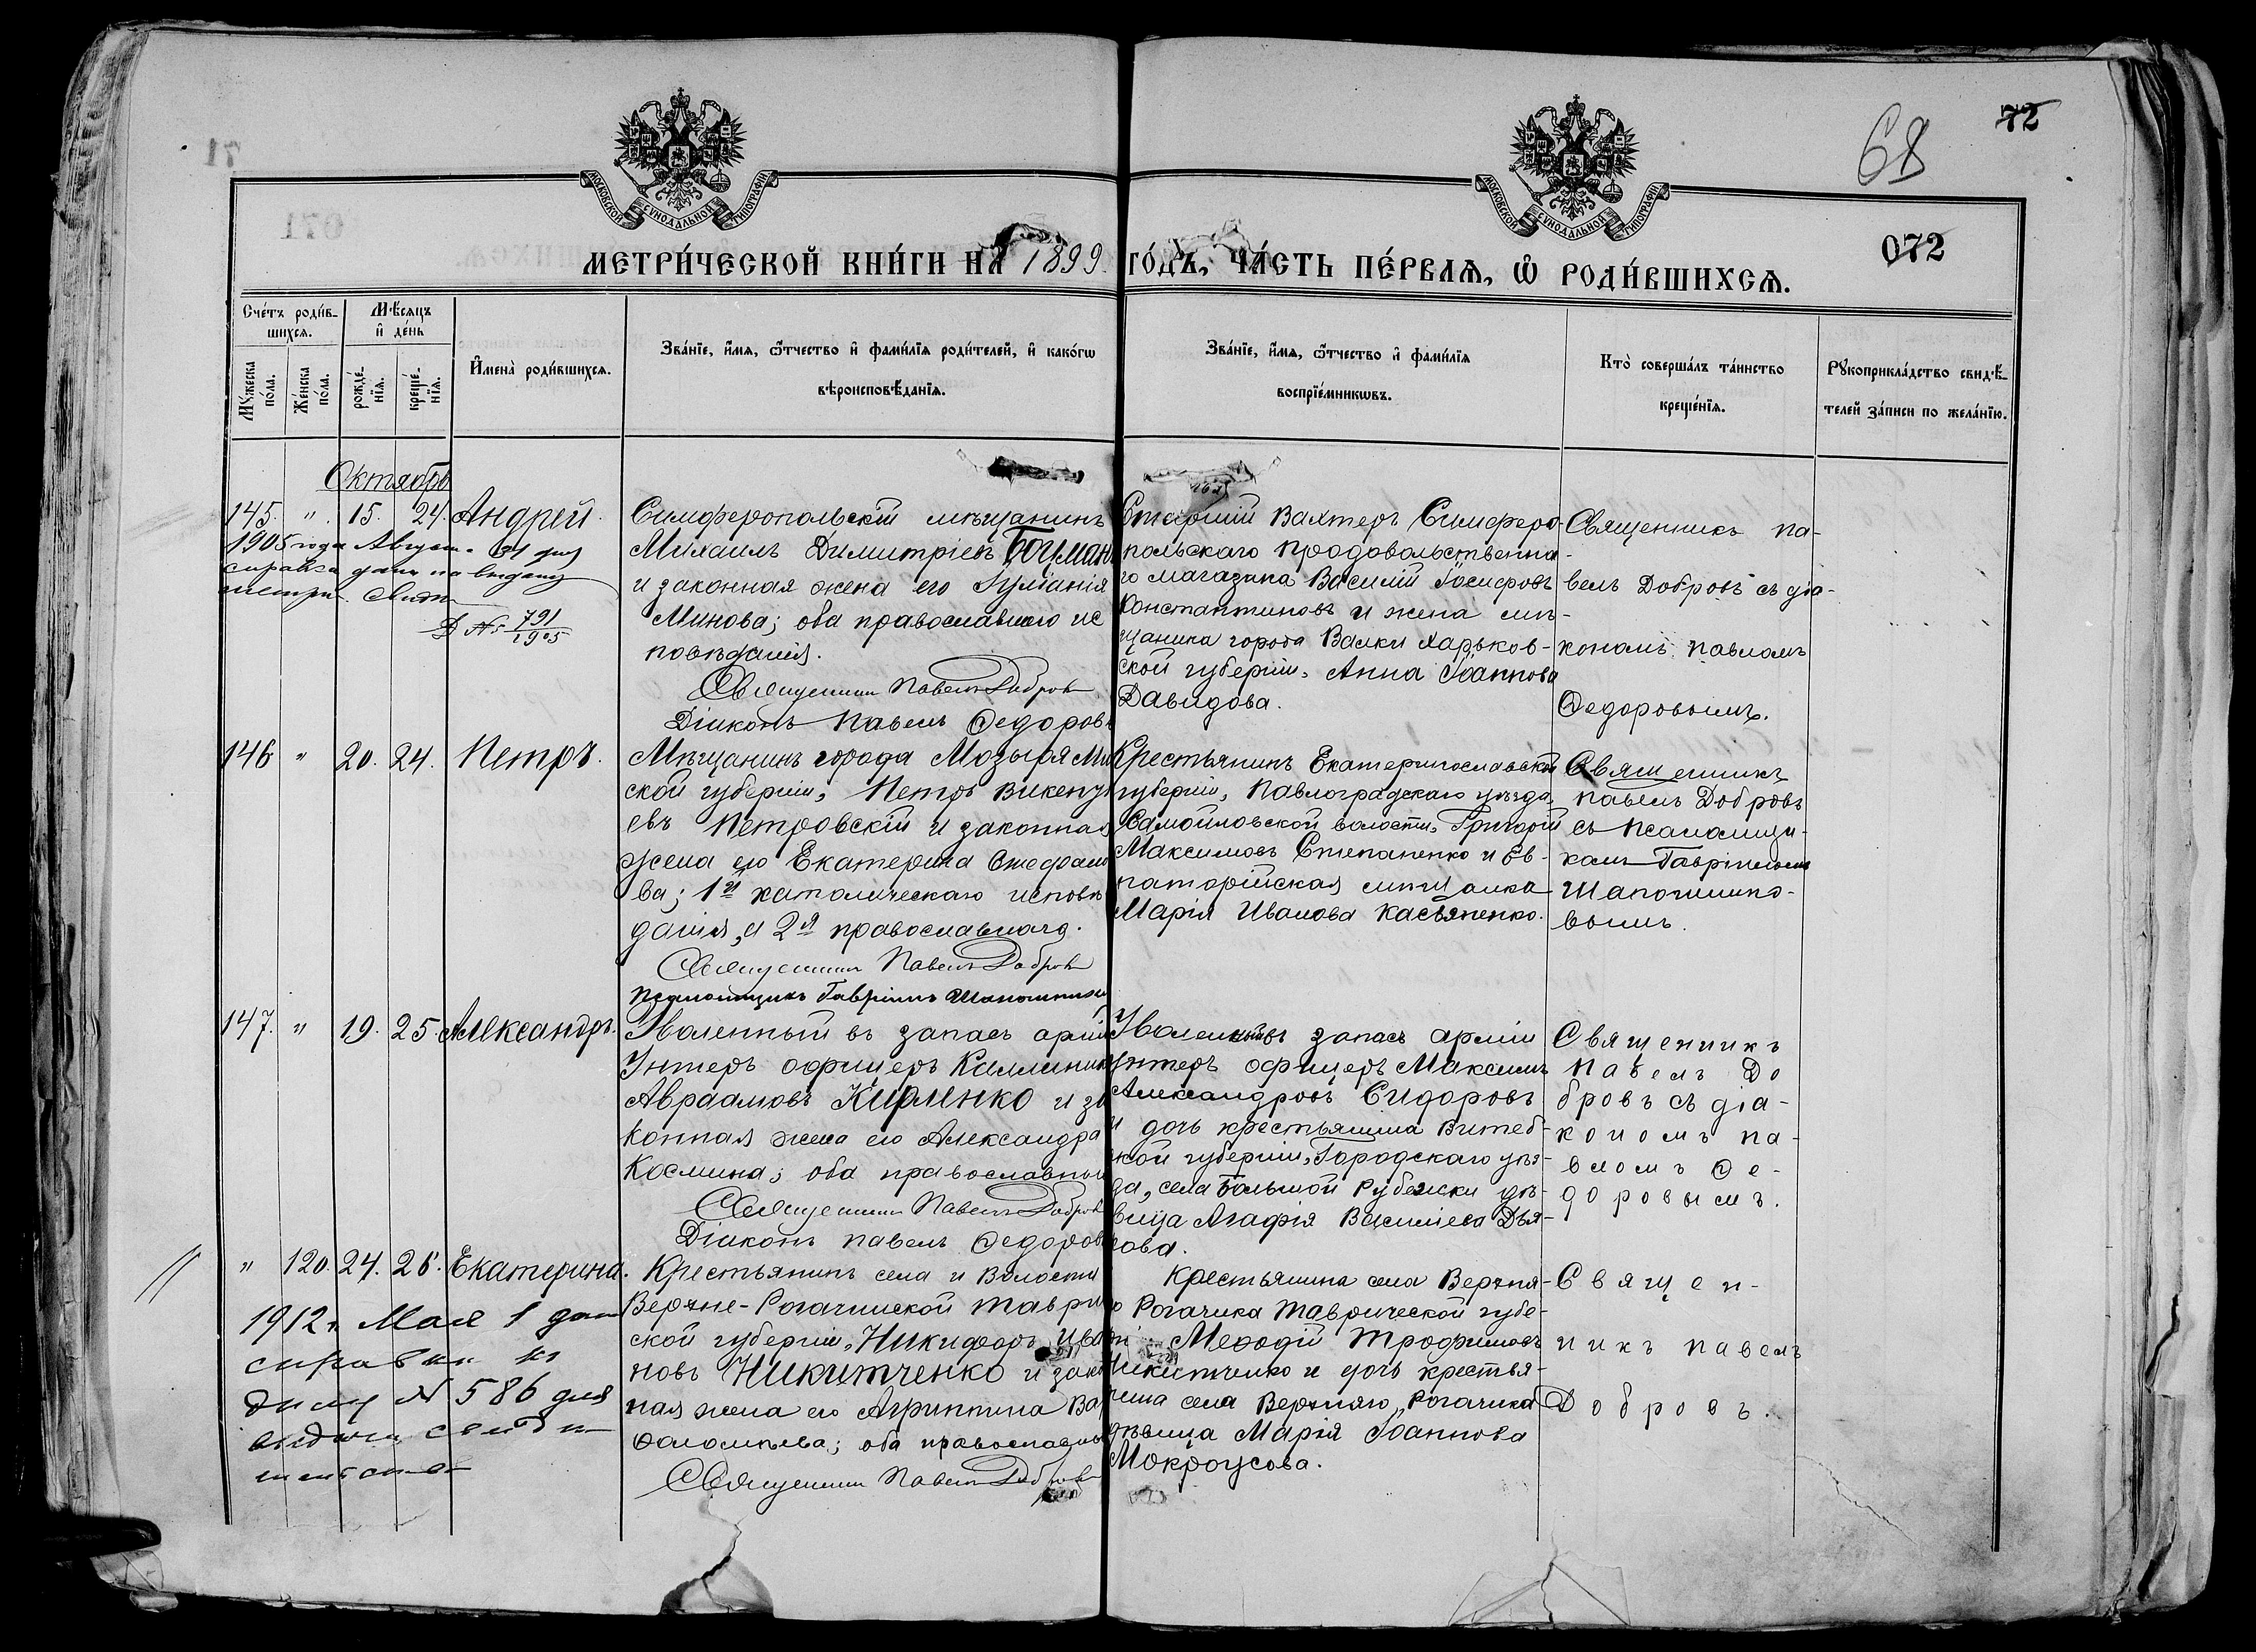 МОСКОВСКОЙ СУНОДАЛЬНОЙ ТИПОГРАФІИ
МОСКОВСКОЙ СУНОДАЛЬНОЙ ТИПОГРАФІИ
68
72
071
072
МЕТРИ́ЧЕСКОЙ КНИ́ГИ НА 1899 ГО́ДЪ, ЧА́СТЬ ПЕ́РВАѦ, Ѡ РОДИ́ВШИХСѦ.
Сче́тъ роди́в-
шихсѧ.
Му́жеска по́ла.
Же́нска по́ла.
Мѣ́сѧцъ
и де́нь
рожде́-
нїѧ.
креще́-
нїѧ.
Имена̀ роди́вшихсѧ.
Зва́нїе, и́мѧ, ѻ҆́тчество и фами́лїѧ роди́телей, и како́гѡ
вѣроисповѣ́данїѧ.
Зва́нїе, и́мѧ, ѻ҆́тчество и фами́лїѧ
воспрїе́мникѡвъ.
Кто̀ соверша́лъ та́инство
креще́нїѧ.
Рꙋкоприкла́дство свидѣ́-
телей за́писи по жела́нїю.
Октябрь
145. " 15. 24. Андрей.
1905 года Август. 31 дня
справка дана на выдачу
метри. Свид.
Д № 791/1905
Симферопольскій мѣщанинъ
Михаилъ Димитріевъ Боцман
и законная жена его Іуліанія
Минова; оба православнаго ис
повѣданія.
Священникъ Павелъ Добровъ
Діаконъ Павелъ Ѳедоровъ
Старшій Вахтеръ Симферо-
польскаго продовольственна-
го магазина Василій Іосифовъ
Константиновъ и жена мѣ-
щанина города Валки Харьков-
ской губерніи, Анна Іоаннова
Давидова.
Священникъ Па-
велъ Добровъ съ діа-
кономъ Павломъ
Ѳедоровымъ.
146 " 20. 24. Петръ.
Мѣщанинъ города Мозыря Ми
ской губерніи, Петръ Викенть
евъ Петровскій и законная
жена его Екатерина Стефано
ва; 1й католическаго исповѣ
данія, а 2я православнаго.
Священникъ Павелъ Добровъ
Псаломщикъ Гавріилъ Шапошников
Крестьянинъ Екатеринославской
губерніи, Павлоградскаго уѣзда,
Самойловской волости, Григорій
Максимовъ Степаненко и Ев-
паторійская мѣщанка
Марія Иванова Касьяненко.
Священникъ
Павелъ Добровъ
съ псаломщи-
комъ Гавріиломъ
Шапошнико-
вымъ.
147. " 19. 25. Александръ.
Уволенный въ запасъ арміи
Унтеръ офицеръ Каллиник
Авраамовъ Кириленко и за
конная жена его Александра
Космина; оба православной
Священникъ Павелъ Добровъ
Діаконъ Павелъ Ѳедоровъ
Уволенный въ запасъ арміи
унтеръ офицеръ Максимъ
Александровъ Сидоровъ
и дочь крестьянина Витеб-
ской губерніи, Городскаго уѣз-
да, села Большой Рубежки дѣ-
вица Агафія Васильева Дья-
кова.
Священникъ
Павелъ До
бровъ съ діа-
кономъ Па-
вломъ Ѳе-
доровымъ.
" 120. 24. 26. Екатерина.
1912 г. Мая 1 дан
справка по
дѣлу № 586 для
выдачи свидѣ
тельства
Крестьянинъ села и Волости
Верхне-Рогачикской Таври
ской губерніи, Никифоръ Ива
новъ Никитченко и закон
ная жена его Агриппина Ва
ѳоломѣева; оба православн
Священникъ Павелъ Добровъ
Крестьянина села Верхня-
го Рогачика Таврической губе-
рніи Меѳодій Трофимовъ
Никитченко и дочь крестья-
нина села Верхняго Рогачика
дѣвица Марія Іоаннова
Мокроусова.
Священ-
никъ Павелъ
Добровъ.